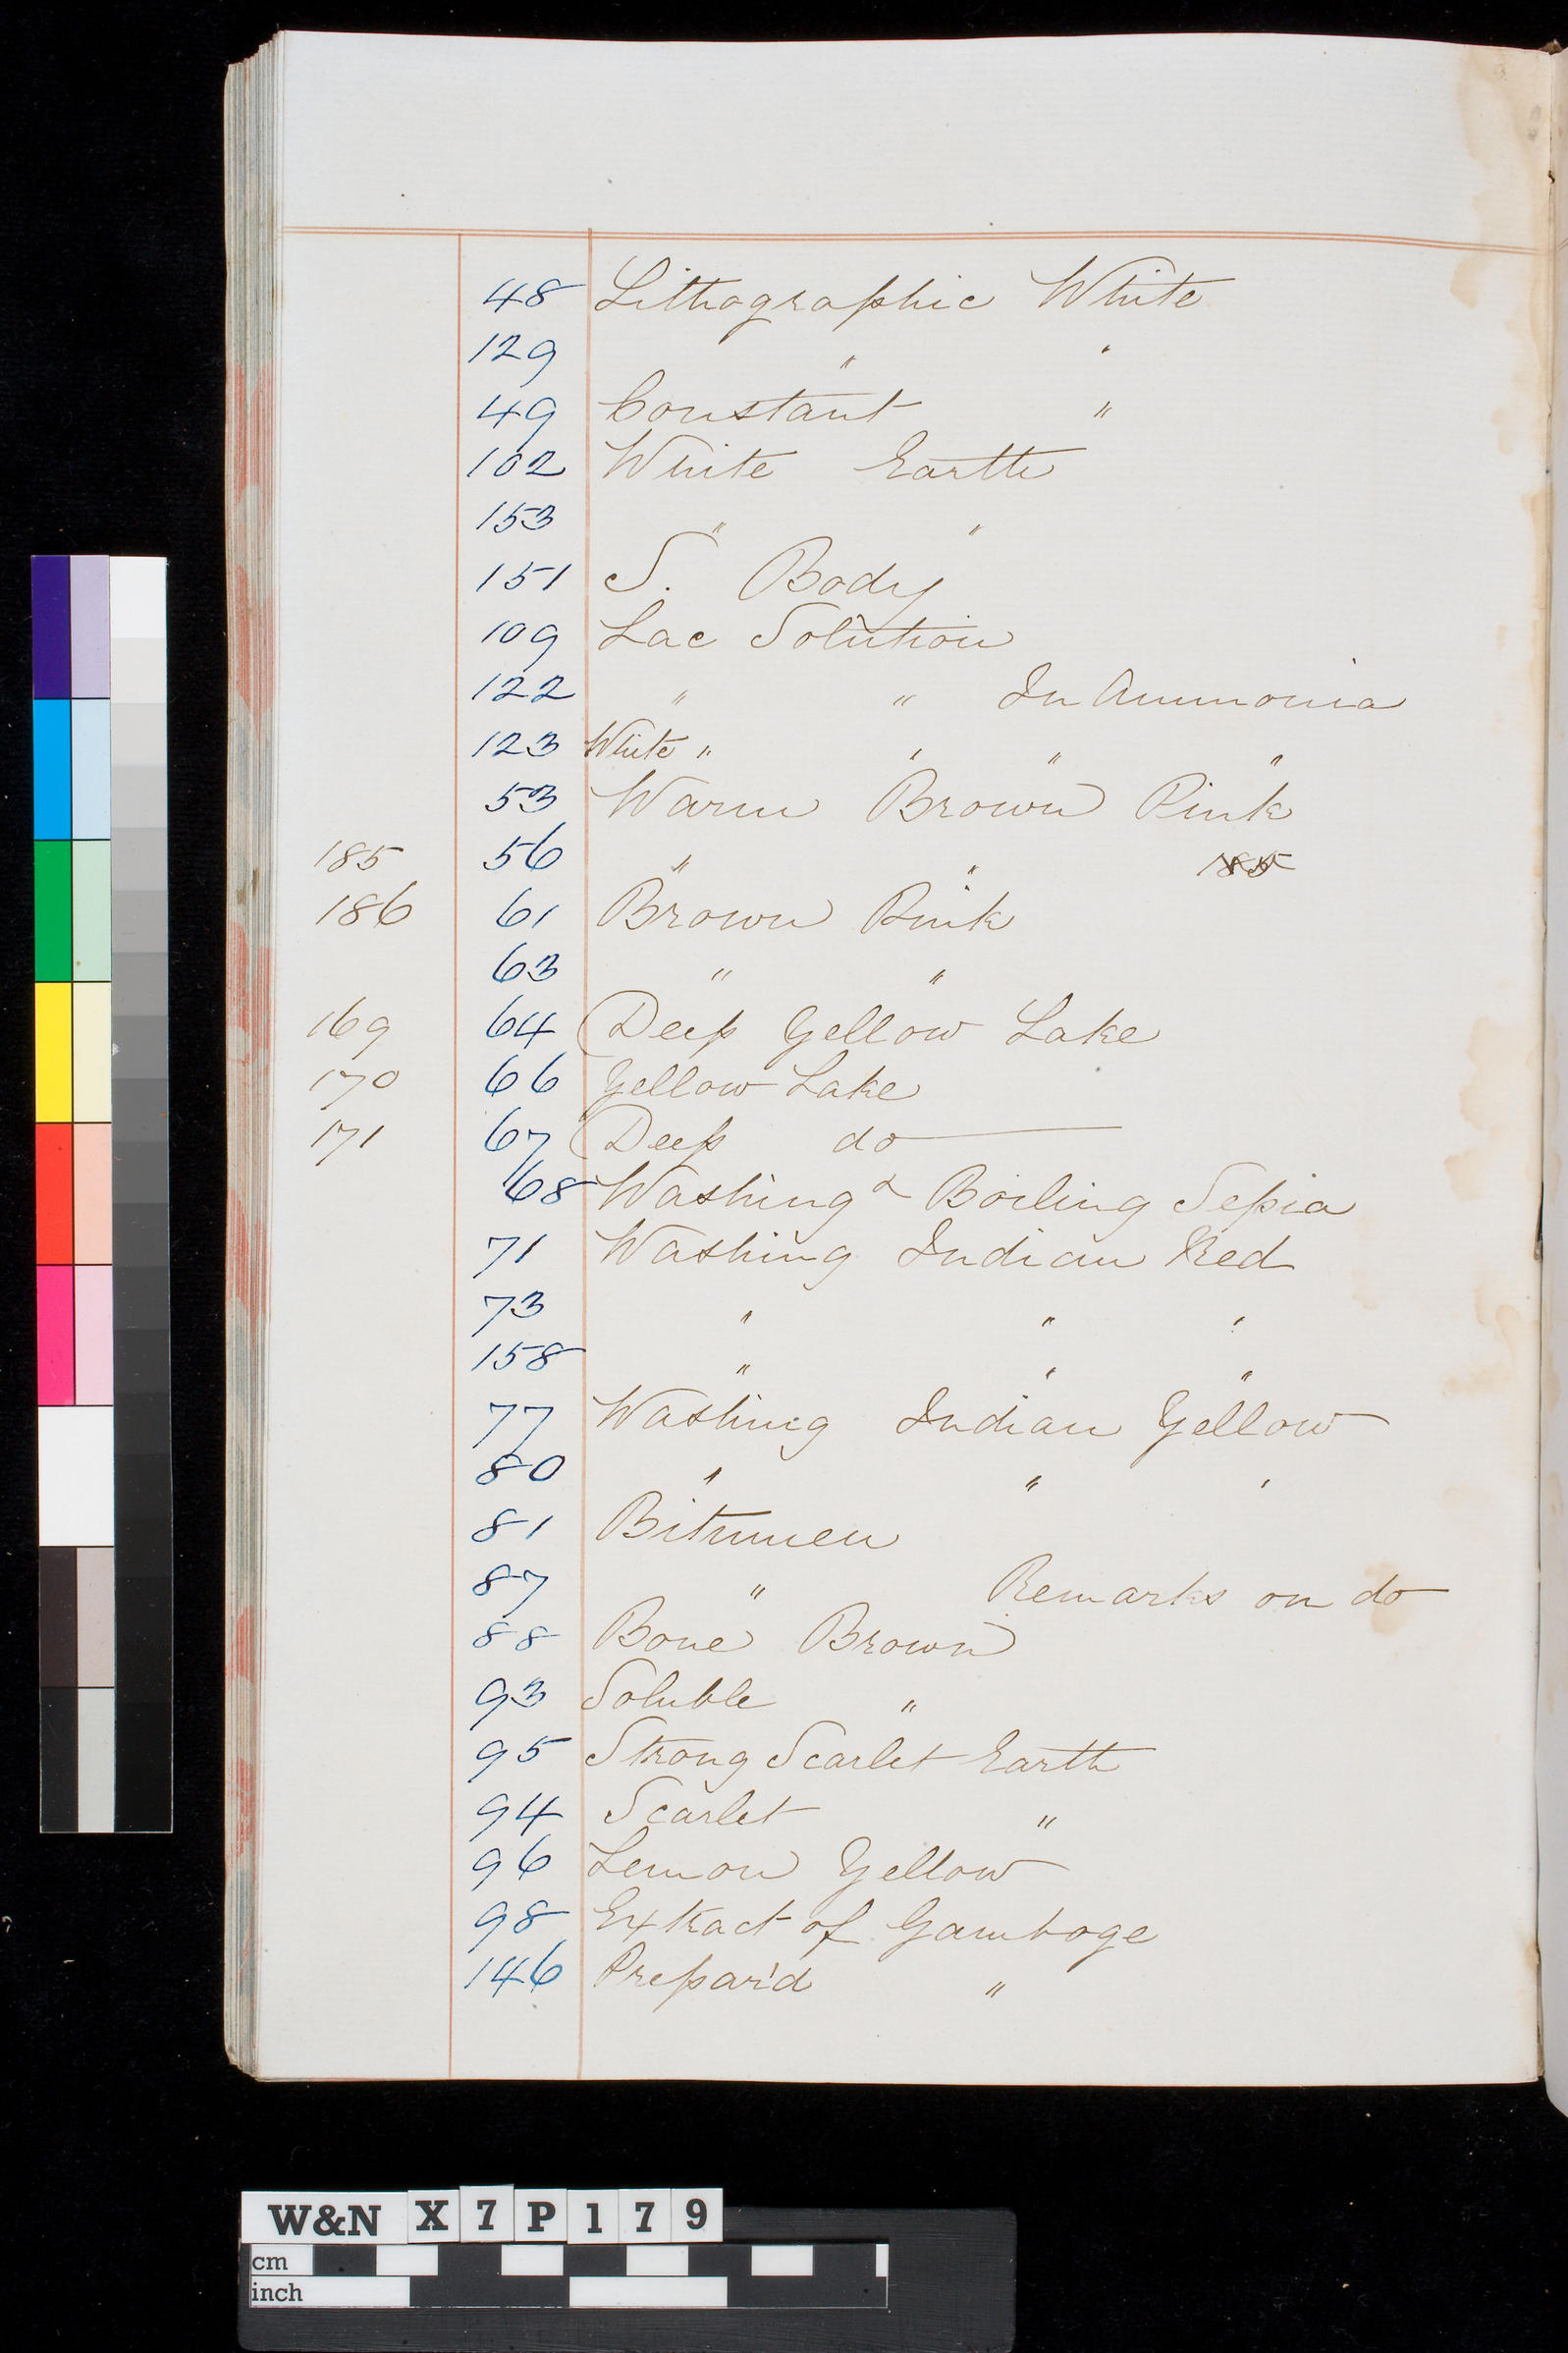 48 Lithographic White
129 " "
49 Constant "
102 White Earth
153 " "
151 S. Body
109 Lac Solution
122 " " In Ammonia
123 White " " " "
53 Warm Brown Pink
185 56 " " 185
186 61 Brown Pink
63 " "
169 64 Deep Yellow Lake
170 66 Yellow Lake
171 67 Deep do
68 Washing & Boiling Sepia
71 Washing Indian Red
73 " " "
158 " " "
77 Washing Indian Yellow
80 " " "
81 Bitumen
87 " Remarks on do
88 Bone Brown
93 Soluble "
95 Strong Scarlet Earth
94 Scarlet "
96 Lemon Yellow
98 Extract of Gamboge
146 Prepar'd "
W&N X7P179
cm
inch